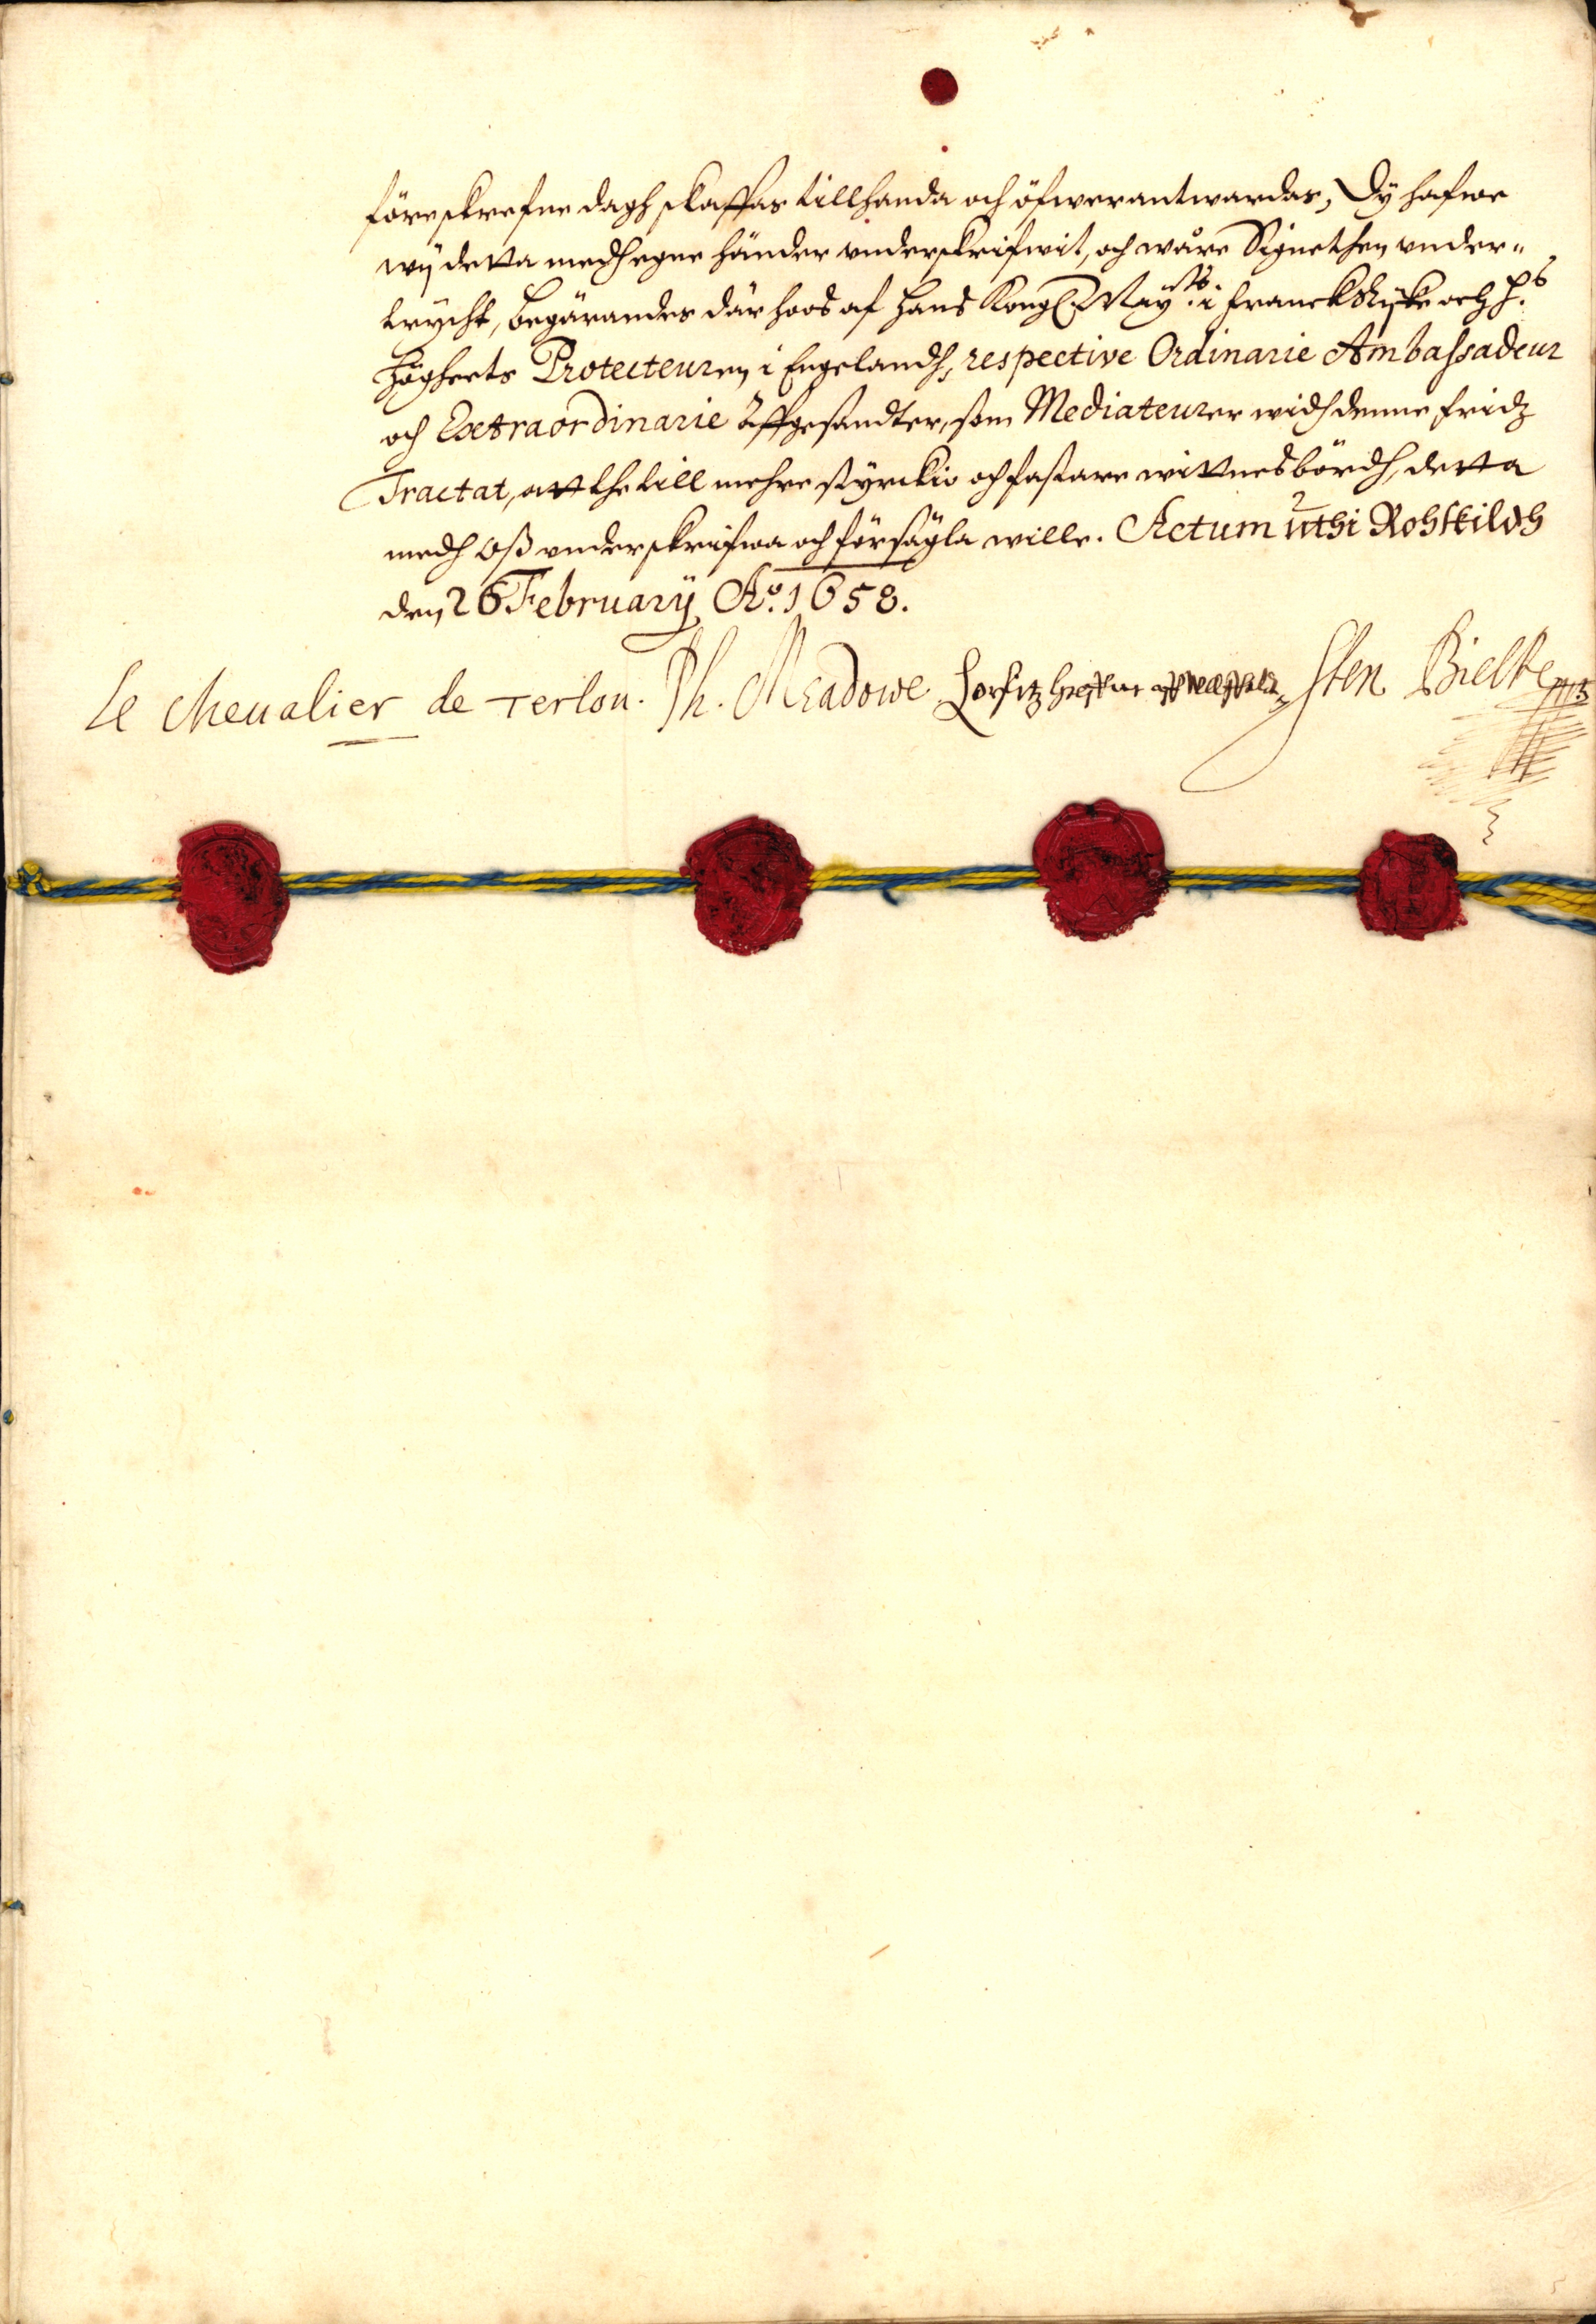 föreskrefne dagh skaffas tillhanda och öfwerantwardas, Dÿ hafwe
wÿ detta medh egne händer underskrifwit, och wåre Signethen under-
trÿcht, begärandes där hoos af Hans Kongl. Maÿ:tts i Franckrijke och H:s
Högheets Protecteuren i Engelandh, respective Ordinarie Ambassadeur
och Extraordinarie Affgesandter, som Mediateurer widh denne fridz
Tractat, att the till mehre stÿrckio och fastare wittnesbördh, detta
medh oß underskrifwa och försägla wille. Actum uthi Rohskildh
den 26 Februarÿ Ao. 1658.
Le Cheualier de Terlon. Ph. Meadowe Sten Bielke